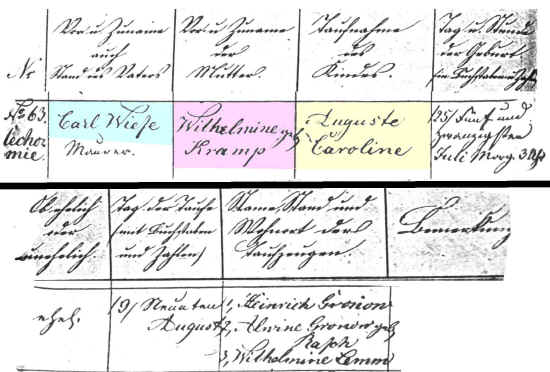 Nr
Vor u. Zuname
auch
Stand des Vaters
Vor u. Zuname
der
Mutter.
Taufname
des
Kindes.
Tag u. Stunde
der Geburt
No 63.
mie.
Carl Wiese
Maurer.
Wilhelmine geb
Kramp
Auguste
Caroline
25/ Fünf und
zwanzigsten
Juli Morg. 3 Uhr
Ob ehelich
oder
unehelich.
Tag der Taufe
(mit Buchstaben
und Zahlen)
Name, Stand und
Wohnort der
Taufzeugen.
Bemerkung
ehel.
9/ Neunten
August
1, Heinrich Gronow
2, Alwine Gronow geb
3, Wilhelmine Lemm